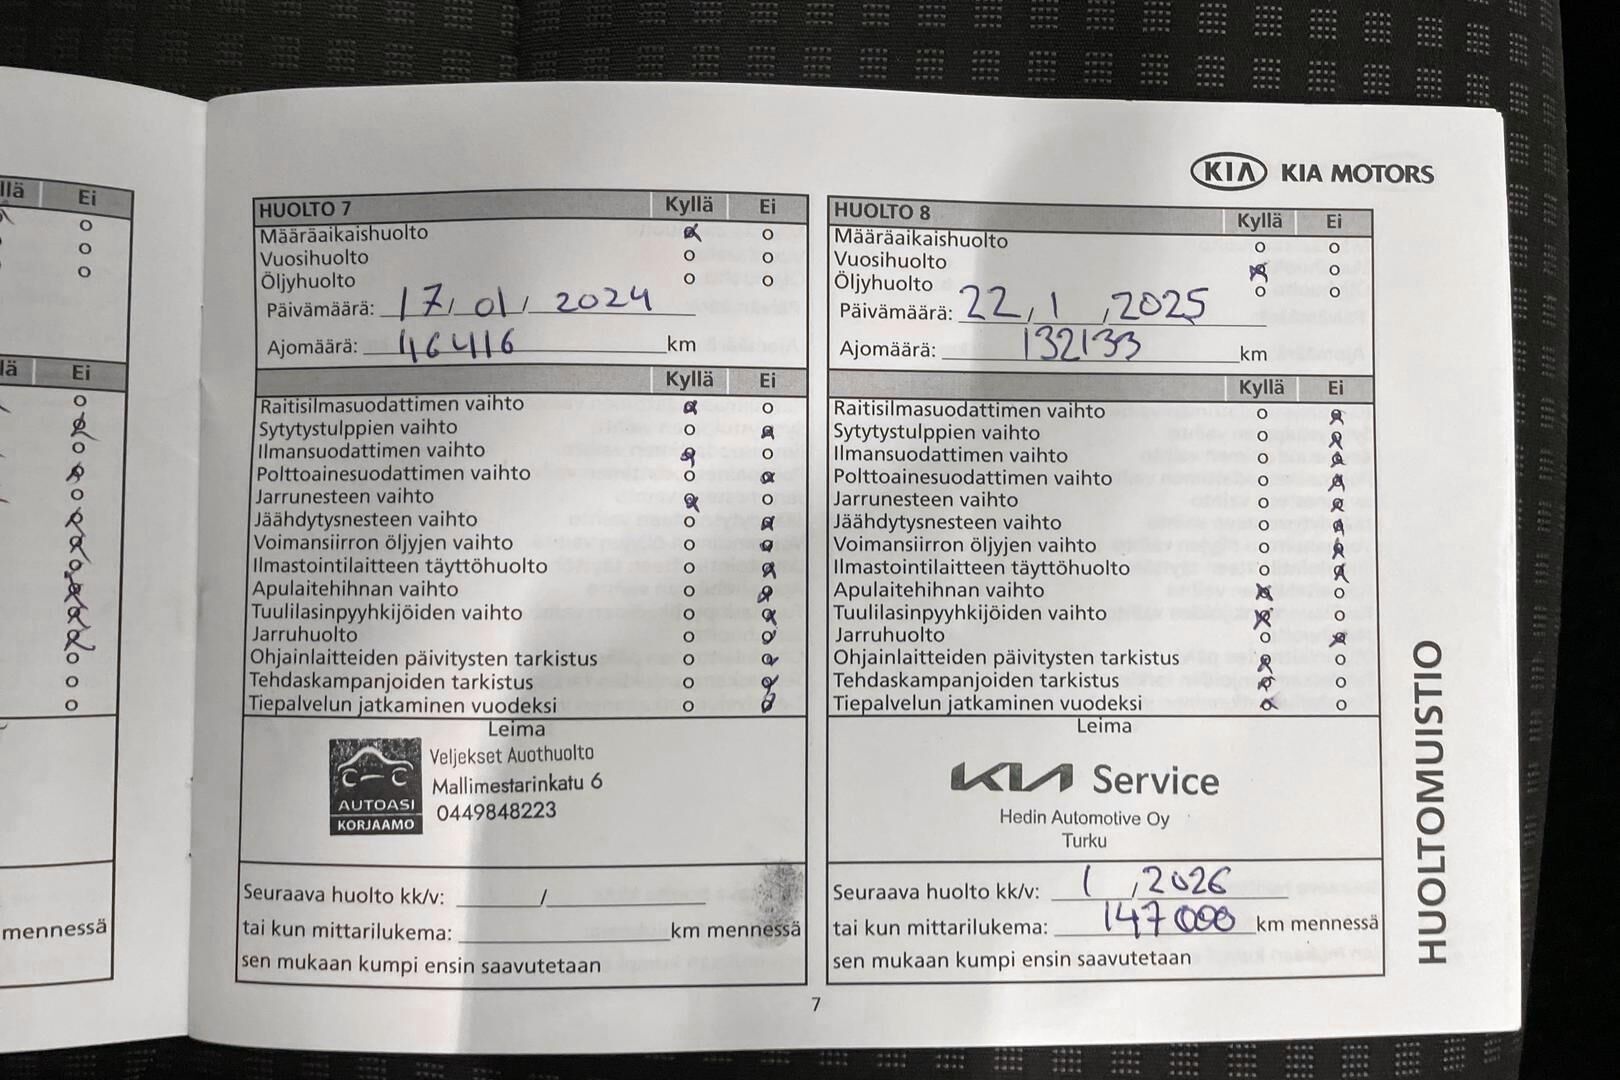 llä Ei
lä Ei
mennessä
KIA KIA MOTORS
HUOLTO 7 Kyllä Ei
Määräaikaishuolto
Vuosihuolto
Öljyhuolto
Päivämäärä: 17/01/2024
Ajomäärä: 116416 km
Kyllä Ei
Raitisilmasuodattimen vaihto
Sytytystulppien vaihto
Ilmansuodattimen vaihto
Polttoainesuodattimen vaihto
Jarrunesteen vaihto
Jäähdytysnesteen vaihto
Voimansiirron öljyjen vaihto
Ilmastointilaitteen täyttöhuolto
Apulaitehihnan vaihto
Tuulilasinpyyhkijöiden vaihto
Jarruhuolto
Ohjainlaitteiden päivitysten tarkistus
Tehdaskampanjoiden tarkistus
Tiepalvelun jatkaminen vuodeksi
Leima
C-C
AUTOASI
KORJAAMO
Veljekset Auothuolto
Mallimestarinkatu 6
0449848223
Seuraava huolto kk/v: /
tai kun mittarilukema: km mennessä
sen mukaan kumpi ensin saavutetaan
HUOLTO 8 Kyllä Ei
Määräaikaishuolto
Vuosihuolto
Öljyhuolto
Päivämäärä: 22/1/2025
Ajomäärä: 132133 km
Kyllä Ei
Raitisilmasuodattimen vaihto
Sytytystulppien vaihto
Ilmansuodattimen vaihto
Polttoainesuodattimen vaihto
Jarrunesteen vaihto
Jäähdytysnesteen vaihto
Voimansiirron öljyjen vaihto
Ilmastointilaitteen täyttöhuolto
Apulaitehihnan vaihto
Tuulilasinpyyhkijöiden vaihto
Jarruhuolto
Ohjainlaitteiden päivitysten tarkistus
Tehdaskampanjoiden tarkistus
Tiepalvelun jatkaminen vuodeksi
Leima
KIA Service
Hedin Automotive Oy
Turku
Seuraava huolto kk/v: 1/2026
tai kun mittarilukema: 147000 km mennessä
sen mukaan kumpi ensin saavutetaan
HUOLTOMUISTIO
7